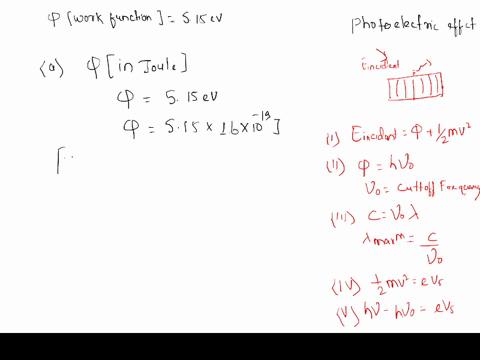 φ [work function] = 5.15 eV
(a) φ [in Joule]
φ = 5.15 eV
φ = 5.15 × 16 × 10^-19 J
photoelectric effect
Eincident
(i) Eincident = φ + 1/2 mv²
(ii) φ = hν₀
ν₀ = cuttoff frequency
(iii) c = ν₀ λ
λ maxᵐ = c/ν₀
(iv) 1/2 mv² = eVs
(v) hν - hν₀ = eVs